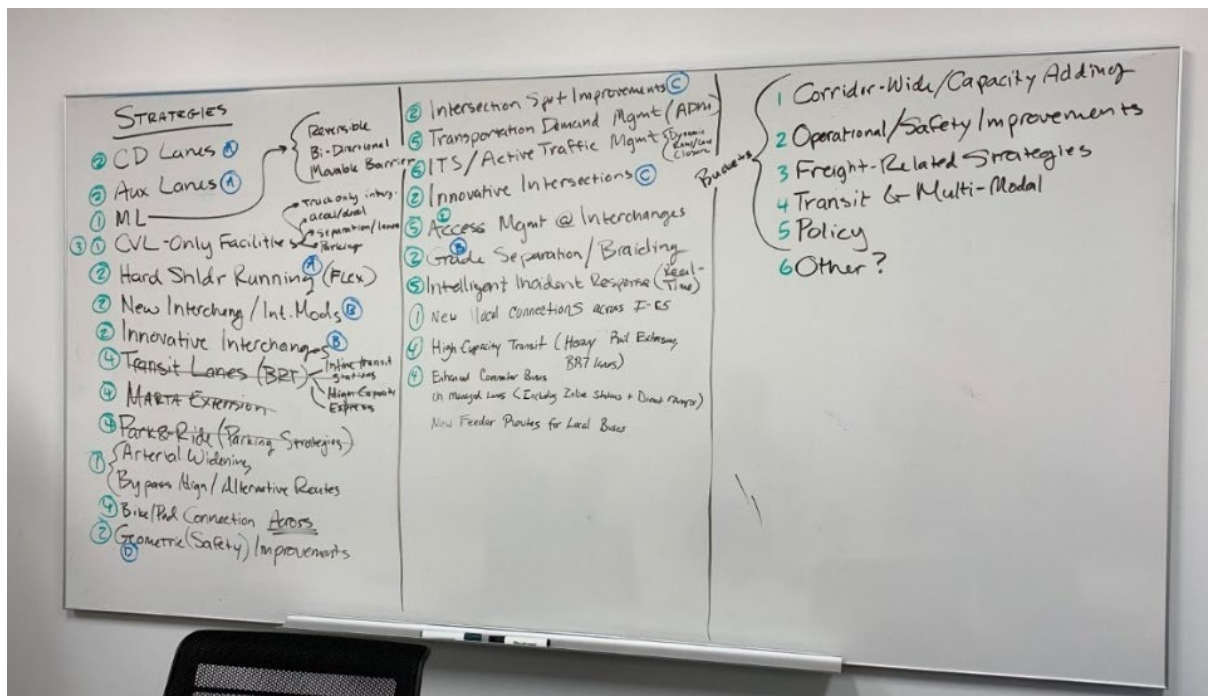 STRATEGIES
② CD Lanes Ⓐ
② Aux Lanes Ⓐ
① ML
Reversible
Bi-Directional
Movable Barrier
③ ① CVL-Only Facilities
Truck only
accel/decel
separation/lanes
Parking
② Hard Shldr Running Ⓐ (FLEX)
② New Interchng/Int. Mods Ⓑ
② Innovative Interchanges Ⓑ
④ Transit Lanes (BRT)
Inline transit
stations
High Capacity
Express
④ MARTA Extension
④ Park&-Ride (Parking Strategies)
① Arterial Widening
Bypass Align/Alternative Routes
④ Bike/Ped Connection Across
② Geometric (Safety) Improvements
Ⓓ
② Intersection Spot Improvements Ⓒ
⑤ Transportation Demand Mgmt/
⑥ ITS/Active Traffic Mgmt
Dynamic
Closure
② Innovative Intersections Ⓒ
⑤ Access Mgmt @ Interchanges
Ⓑ
② Grade Separation/Braiding
⑤ Intelligent Incident Response (Real-
Time)
① New local connections across
④ High Capacity Transit (Heavy Rail Extension,
BRT
④ Enhanced Commuter Buses
on Managed Lanes (Including Stations + Direct
New Feeder Routes for Local Buses
Buckets
1 Corridor-Wide/Capacity Adding
2 Operational/Safety Improvements
3 Freight-Related Strategies
4 Transit & Multi-Modal
5 Policy
6 Other?